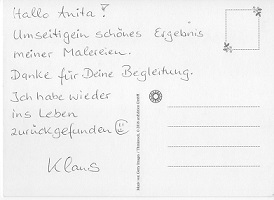 Hallo Anita!
Umseitig ein schönes Ergebnis
meiner Malereien.
Danke für Deine Begleitung.
Ich habe wieder
ins Leben
zurückgefunden
Klaus